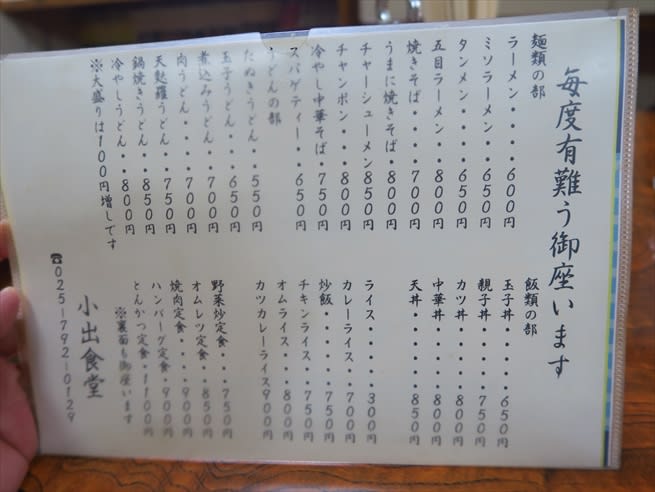 毎度有難う御座います
麺類の部
ラーメン・・・・600円
ミソラーメン・・・650円
タンメン・・・・650円
五目ラーメン・・・800円
焼きそば・・・・700円
うまに焼きそば・・800円
チャーシューメン850円
チャンポン・・・800円
冷やし中華そば・・750円
スパゲティー・・650円
うどんの部
たぬきうどん・・550円
玉子うどん・・・650円
煮込みうどん・・700円
肉うどん・・・・700円
天麩羅うどん・・750円
鍋焼きうどん・・850円
冷やしうどん・・800円
※大盛りは100円増しです
飯類の部
玉子丼・・・・・650円
親子丼・・・・・750円
カツ丼・・・・・800円
中華丼・・・・・800円
天丼・・・・・・850円
ライス・・・・・300円
カレーライス・・・700円
炒飯・・・・・・750円
チキンライス・・・750円
オムライス・・・800円
カツカレーライス900円
野菜炒定食・・・750円
オムレツ定食・・・850円
焼肉定食・・・・900円
ハンバーグ定食・・900円
とんかつ定食・・1100円
※裏面も御座います
小出食堂
☎025-792-0129